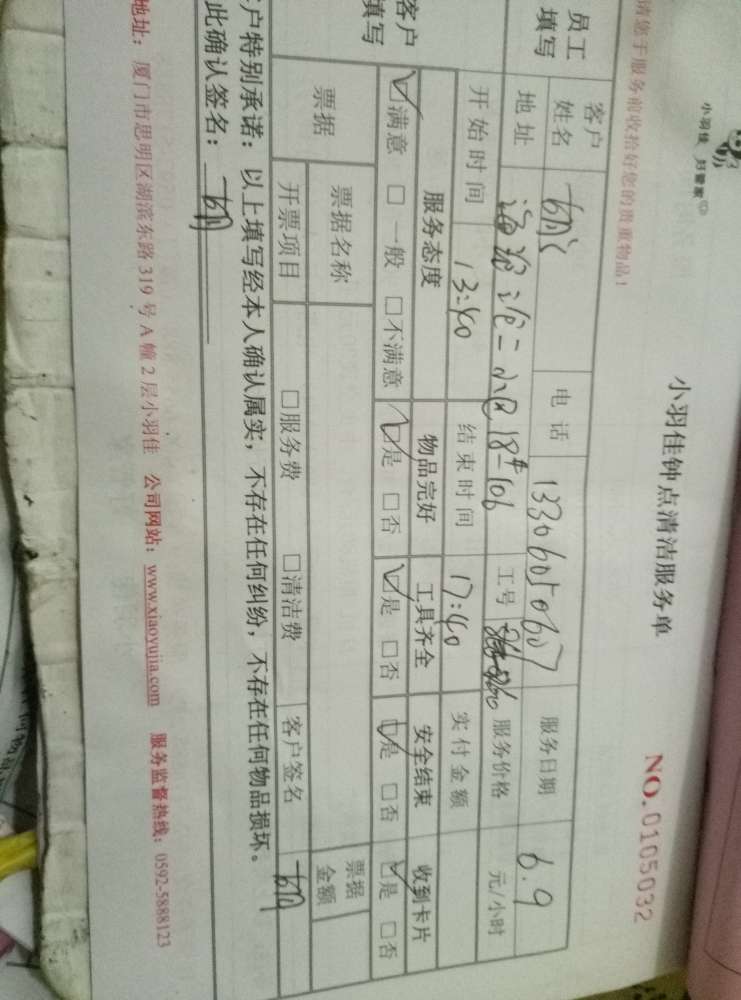 小羽佳 妇管家
小羽佳钟点清洁服务单
NO.0105032
请您于服务前收拾好您的贵重物品！
员工填写
客户姓名 电话 13306050607 服务日期 6.9
地址 18#-106 工号 服务价格 元/小时
开始时间 13:40 结束时间 17:40 实付金额
客户填写
服务态度 物品完好 工具齐全 安全结束 收到卡片
☑满意 □一般 □不满意 ☑是 □否 ☑是 □否 ☑是 □否 ☑是 □否
票据 票据名称 票据金额
开票项目 □服务费 □清洁费 客户签名
客户特别承诺：以上填写经本人确认属实，不存在任何纠纷，不存在任何物品损坏。
此确认签名：
地址：厦门市思明区湖滨东路319号A幢2层小羽佳 公司网站：www.xiaoyujia.com 服务监督热线：0592-5888123